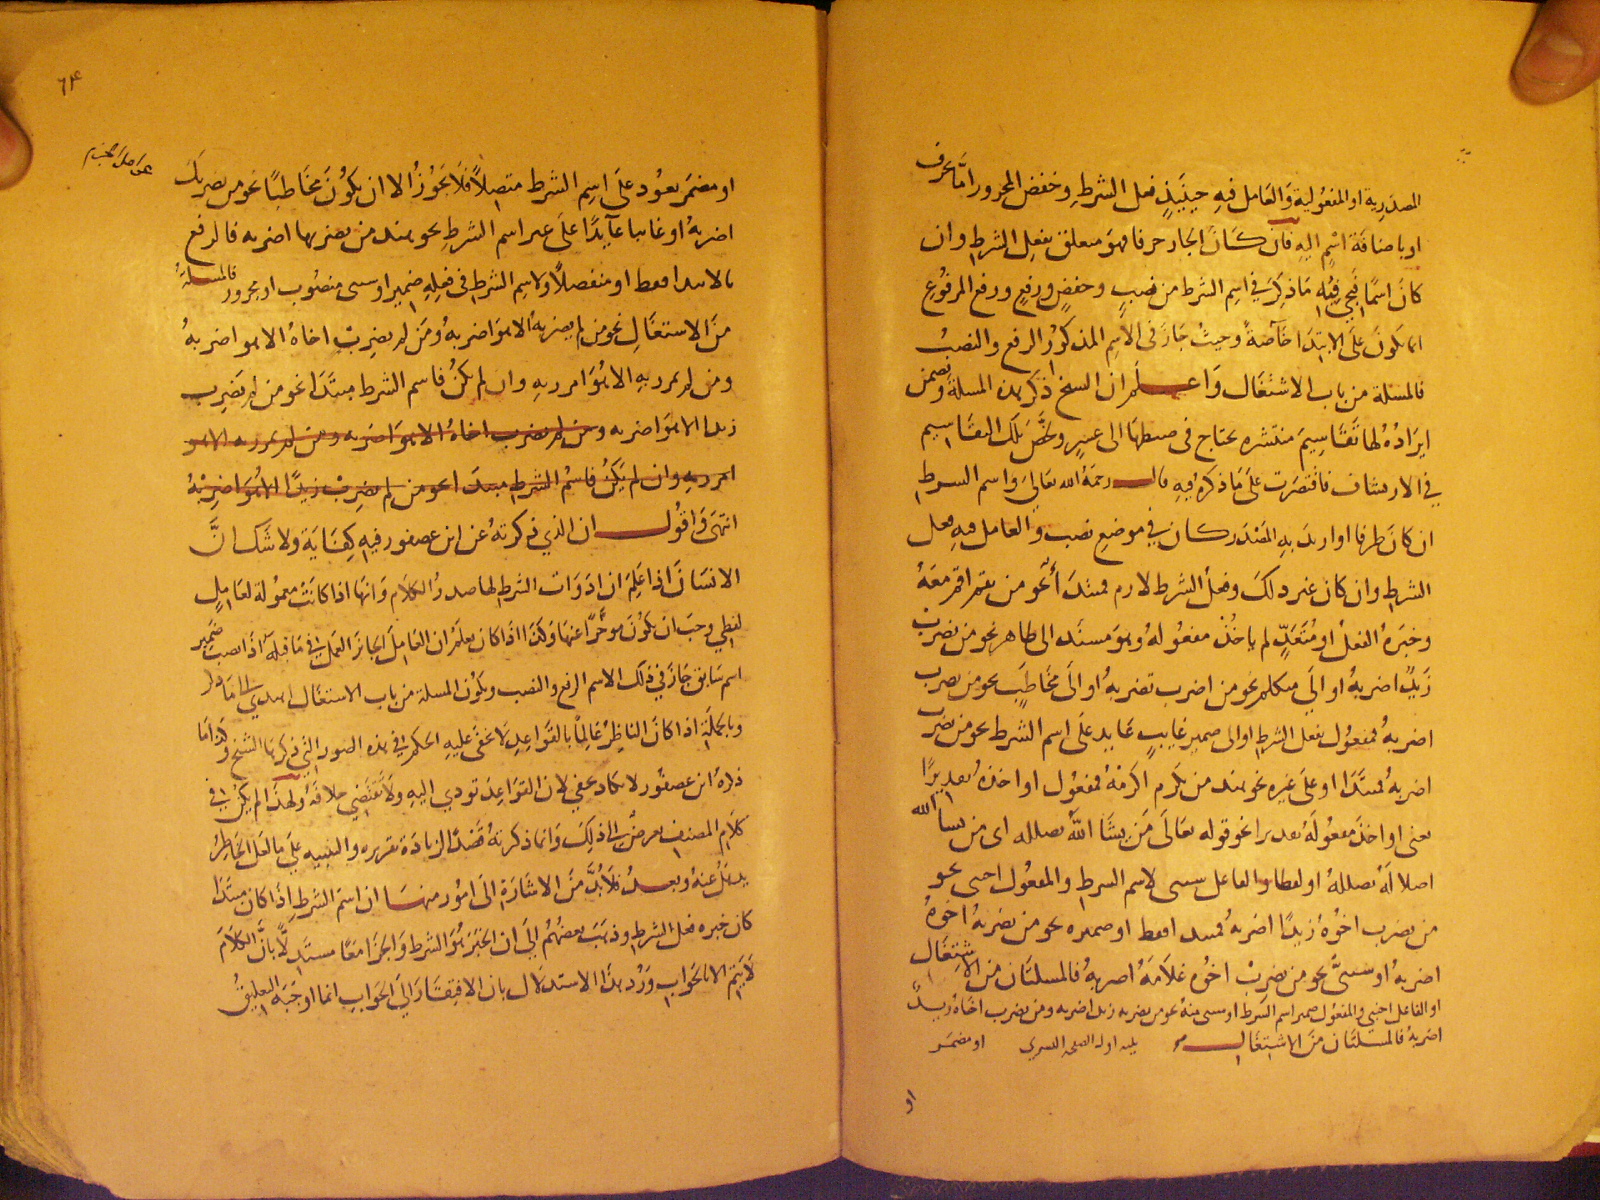 المصدرية او المفعولية والعامل فيه حينئذ فعل الشرط وخفض المجرور اما بحرف
او باضافة اسم اليه فان كان الجار حرفا فهو متعلق بفعل الشرط وان
كان اسما ففيه ما ذكر في اسم الشرط من نصب وخفض ورفع ورفع المرفوع
انما يكون على الابتدا خاصة وحيث جاز في الاسم المذكور الرفع والنصب
فالمسلة من باب الاشتغال واعلم ان الشيخ ذكر هذه المسلة وضمن
ايراده لها تقاسيم منتشرة يحتاج في ضبطها الى عسر ولخص تلك التقاسيم
في الارتشاف فاقتصرت على ما ذكره فيه قال رحمه الله تعالى واسم الشرط
ان كان ظرفا او اريد به المصدر كان في موضع نصب والعامل فيه فعل
الشرط وان كان غير ذلك وفعل الشرط لازم فمبتدأ نحو من يقم اقم معه
وخبره الفعل او متعد لم ياخذ مفعوله وهو مسند الى ظاهر نحو من يضرب
زيد اضربه او الى متكلم نحو من اضرب تضربه او الى مخاطب نحو من تضرب
اضربه فمفعول بفعل الشرط او الى ضمير غايب عايد على اسم الشرط نحو من يضرب
اضربه فمبتدا او على غيره نحو هند من تكرم اكرمه فمفعول او اخذه تقديرا
يعنى او اخذ مفعوله تقديرا نحو قوله تعالى من يشا الله يضلله اى من يشا الله
اضلاله يضلله او لفظا والفاعل سببى لاسم الشرط والمفعول اجنبى نحو
من يضرب اخوه زيدا اضربه فمبتدا فقط او ضميره نحو من يضربه اخوه
اضربه او سببى نحو من يضرب اخوه غلامه اضربه فالمسلتان من الاشتغال
او الفاعل اجنبي والمفعول ضمير اسم الشرط او سببى منه نحو من يضربه زيد اضربه ومن يضرب اخاه زيد
اضربه فالمسلتان من الاشتغال يليه اوله الصفحه اليسرى او مضمر
او
٦٤
عوامل الجزم
او مضمر يعود على اسم الشرط متصلا فلا يجوز الا ان يكون مخاطبا نحو من يضربك
اضربه او غايبا عايدا على غير اسم الشرط نحو هند من يضربها اضربه فالرفع
بالابتدا فقط او منفصلا ولاسم الشرط في فعله ضمير او سببى منصوب او مجرور فالمسلة
من الاشتغال نحو من لم يضربه الا هو اضربه ومن لم يضرب اخاه الا هو اضربه
ومن لم يمرر به الا هو امرر به وان لم يكن فاسم الشرط مبتدا نحو من لم يضرب
زيدا الا هو اضربه ومن لم يضرب اخاه الا هو اضربه ومن لم يمرر به الا هو
امرر به وان لم يكن فاسم الشرط مبتدا نحو من لم يضرب زيدا الا هو اضربه
انتهى واقول ان الذي ذكرته عن ابن عصفور فيه كفاية ولا شك ان
الانسان اذا علم ان ادوات الشرط لها صدر الكلام وانها اذا كانت معمولة لعامل
لفظي وجب ان يكون موخرا عنها وكذا اذا كان يعلم ان العامل الجائز العمل في ما قبله اذا نصب ضمير
اسم سابق جاز في ذلك الاسم الرفع والنصب وتكون المسلة من باب الاشتغال اهتدي الى ما قلنا
وبالجملة اذا كان الناظر عالما بالقواعد لا يخفى عليه الحكم في هذه الصور التي ذكرها الشيخ وكذا ما
ذكره ابن عصفور لا يكاد يخفي لان القواعد تودي اليه ولا تقتضي خلافه ولهذا لم يكن في
كلام المصنف تعرض الى ذلك وانما ذكرته قصدا لزيادة تقريره والتنبيه على ما لعل الخاطر
يذهل عنه وبعد فلا بد من الاشارة الى امور منها ان اسم الشرط اذا كان مبتدا
كان خبره فعل الشرط وذهب بعضهم الى ان الخبر هو الشرط والجزا معا مستدلا بان الكلام
لا يتم الا بالجواب ورد هذا الاستدلال بان الافتقار الى الجواب انما اوجبه التعليق